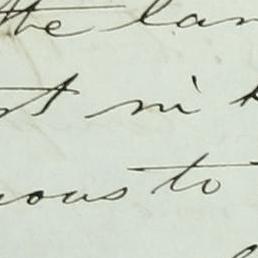 the lan
st in
ious to